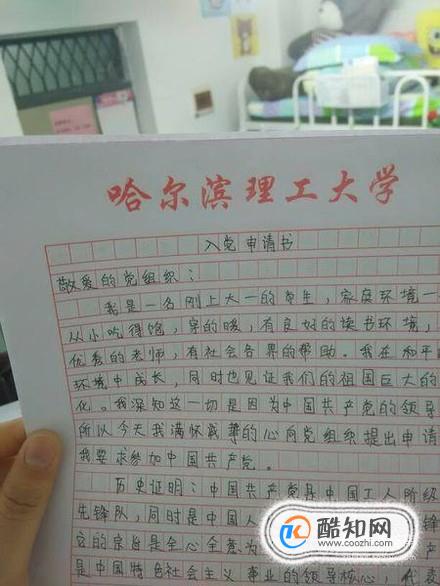 哈尔滨理工大学
入党申请书
敬爱的党组织：
我是一名刚上大一的学生，家庭环境一
从小吃得饱，穿的暖，有良好的读书环境，
优秀的老师，有社会各界的帮助。我在和平
环境中成长，同时也见证我们的祖国巨大的
化。我深知这一切是因为中国共产党的领导
所以今天我满怀真挚的心向党组织提出申请
我要求参加中国共产党。
历史证明：中国共产党是中国工人阶级
先锋队，同时是中国人
党的宗旨是全心全意为
是中国特色社会主义事业的领导核心，代表
酷知网
www.coozhi.com